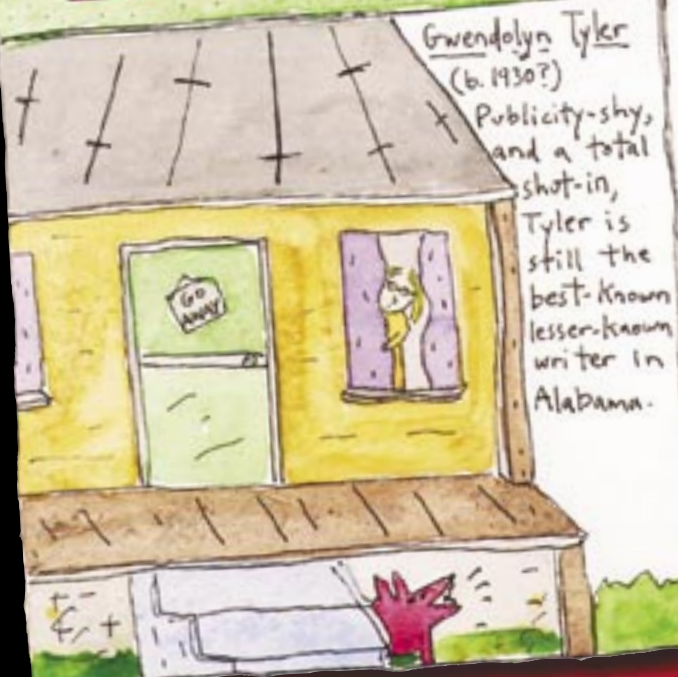 Gwendolyn Tyler
(b. 1930?)
Publicity-shy,
and a total
shut-in,
Tyler is
still the
best-known
lesser-known
writer in
Alabama.
GO
AWAY